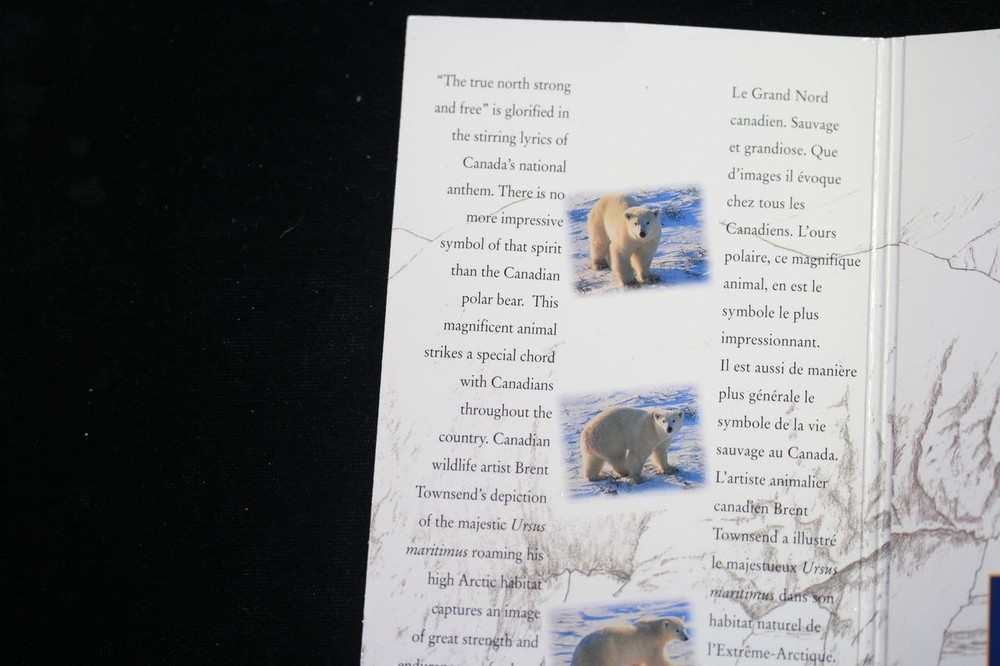 “The true north strong
and free” is glorified in
the stirring lyrics of
Canada’s national
anthem. There is no
more impressive
symbol of that spirit
than the Canadian
polar bear.  This
magnificent animal
strikes a special chord
with Canadians
throughout the
country. Canadian
wildlife artist Brent
Townsend’s depiction
of the majestic Ursus
maritimus roaming his
high Arctic habitat
captures an image
of great strength and
Le Grand Nord
canadien. Sauvage
et grandiose. Que
d’images il évoque
chez tous les
Canadiens. L’ours
polaire, ce magnifique
animal, en est le
symbole le plus
impressionnant.
Il est aussi de manière
plus générale le
symbole de la vie
sauvage au Canada.
L’artiste animalier
canadien Brent
Townsend a illustré
le majestueux Ursus
maritimus dans son
habitat naturel de
l’Extrême-Arctique.